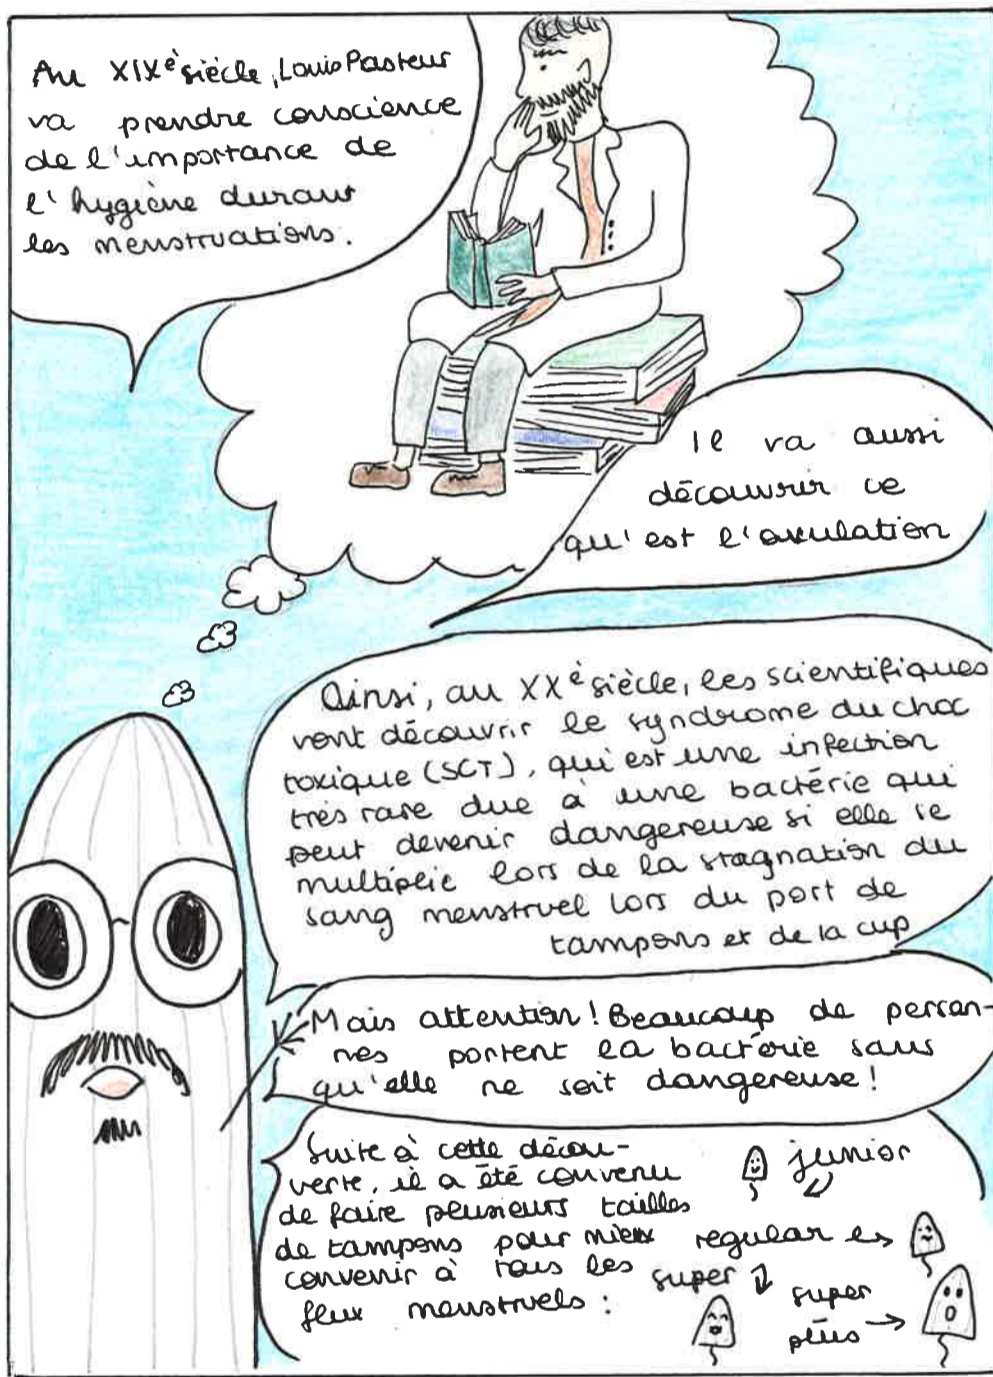 Au XIXè siècle, Louis Pasteur
va prendre conscience
de l'importance de
l'hygiène durant
les menstruations.
Il va aussi
découvrir ce
qu'est l'ovulation
Ainsi, au XXè siècle, les scientifiques
vont découvrir le syndrome du choc
toxique (SCT), qui est une infection
très rare due à une bactérie qui
peut devenir dangereuse si elle se
multiplie lors de la stagnation du
sang menstruel lors du port de
tampons et de la cup
Mais attention ! Beaucoup de person-
nes portent la bactérie sans
qu'elle ne soit dangereuse !
Suite à cette décou-
verte, il a été convenu
de faire plusieurs tailles
de tampons pour mieux
convenir à tous les
flux menstruels :
junior
regular
super
super
plus